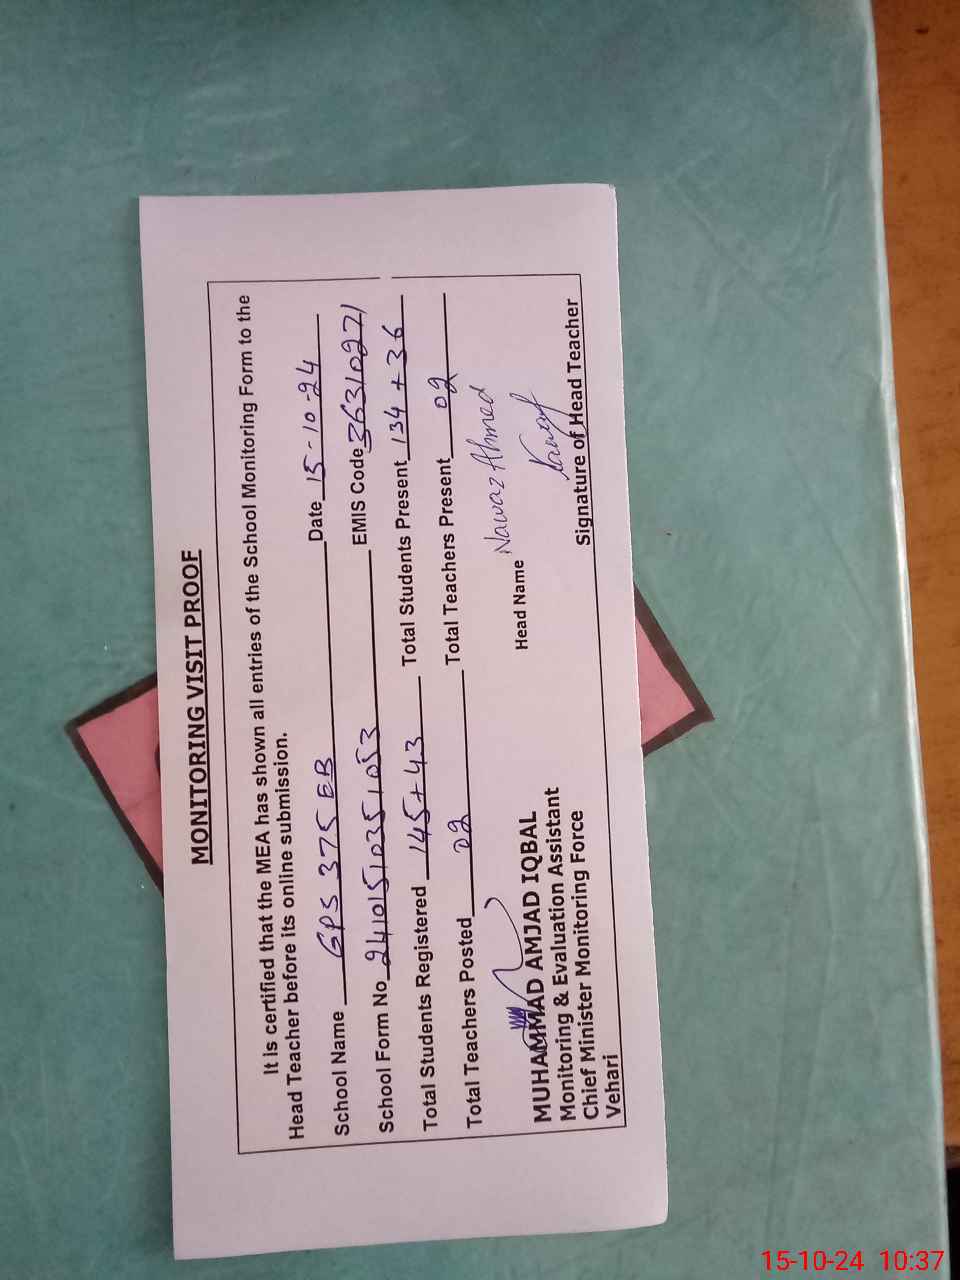 MONITORING VISIT PROOF
It is certified that the MEA has shown all entries of the School Monitoring Form to the
Head Teacher before its online submission.
School Name GPS 375 EB Date 15-10-24
School Form No 24101510351053 EMIS Code 36310271
Total Students Registered 145+43 Total Students Present 134+36
Total Teachers Posted 02 Total Teachers Present 02
Head Name Nawaz Ahmed
MUHAMMAD AMJAD IQBAL
Monitoring & Evaluation Assistant
Chief Minister Monitoring Force
Vehari
Nawaz
Signature of Head Teacher
15-10-24 10:37